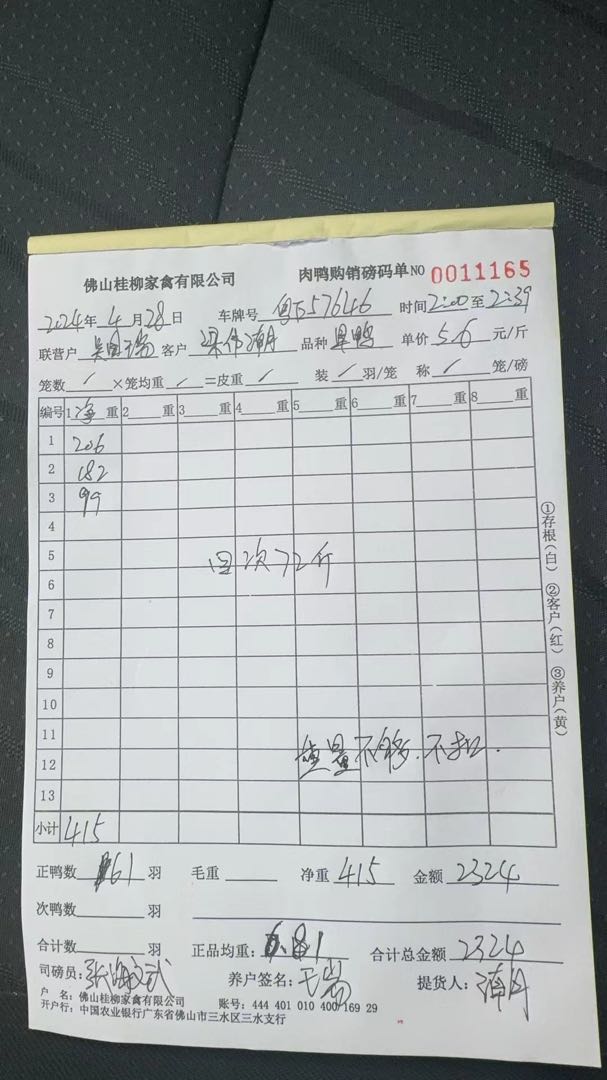 佛山桂柳家禽有限公司 肉鸭购销磅码单NO 0011165
2024年 4月28日 车牌号 时间2:00至2:39
联营户 客户 梁伟潮 品种 单价 5.6 元/斤
笼数 / ×笼均重 / =皮重 / 装 / 羽/笼 称 / 笼/磅
编号 1净重 2 重 3 重 4 重 5 重 6 重 7 重 8 重
1 206
2 182
3 99
4
5
回次72斤
6
7
8
9
10
11
重量不够.不扣.
12
13
小计 415
①存根(白) ②客户(红) ③养户(黄)
正鸭数 61 羽 毛重 净重 415 金额 2324
次鸭数 羽
合计数 羽 正品均重: 6.81 合计总金额 2324
司磅员: 养户签名: 提货人:
户 名: 佛山桂柳家禽有限公司 账号: 444 401 010 400/169 29
开户行: 中国农业银行广东省佛山市三水区三水支行